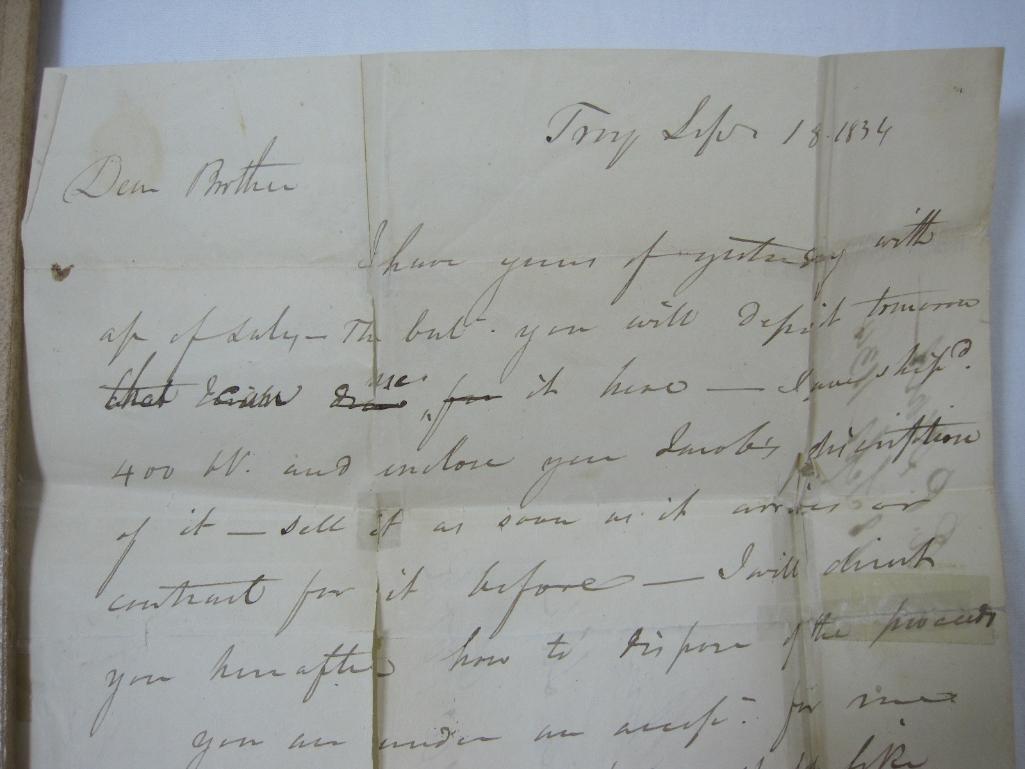 Troy Sepr 18. 1834
Dear Brother
I have yours of yesterday with
of sales – The balc. you will deposit tomorrow
that I can use for it here — I have ship'd.
400 bb. and enclose you Jacob's description
of it — sell it as soon as it arrives or
contract for it before — I will direct
you hereafter how to dispose of the proceeds
you are under an accep. for me
like